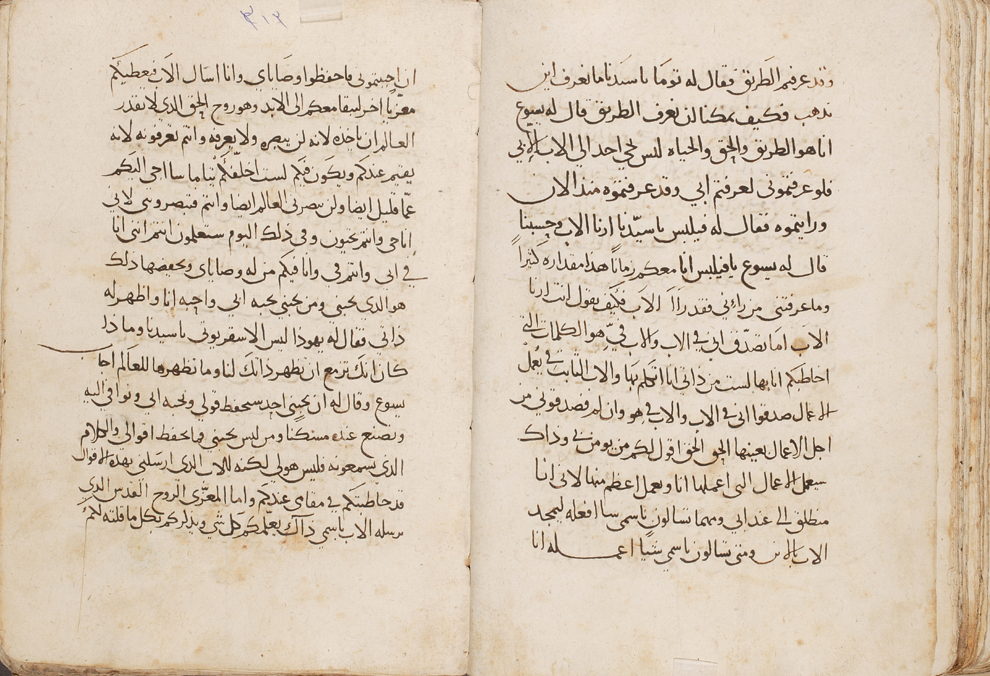 وقد عرفتم الطريق فقال له توما يا سيدنا ما نعرف اين
تذهب وكيف يمكننا ان نعرف الطريق قال له يسوع
انا هو الطريق والحق والحياه ليس يجي احد الى الاب الا بي
فلو عرفتموني لعرفتم ابي وقد عرفتموه منذ الان
ورايتموه فقال له فيلبس يا سيدنا ارنا الاب وحسبنا
قال له يسوع يا فيلبس انا معكم زمانا هذا مقداره كثيرا
وما عرفتني من رااني فقد راا الاب فكيف تقول انت ارنا
الاب اما تصدق اني في الاب والاب في هو الكلمات التي
اخاطبكم انا بها لست من ذاتي انا اتكلم بها والاب الثابت في يعمل
الاعمال صدقوا اني في الاب والاب في هو وان لم فصدقوني من
اجل الاعمال بعينها الحق الحق اقول لكم من يومن بي وذاك
سيعمل الاعمال التي اعملها انا ويعمل اعظم منها لاني انا
منطلق الى عند ابي ومهما تسالون باسمي ساافعله ليمجد
الاب بالابن ومتى تسالون باسمي شيا اعمله انا
٣١٢
ان احببتموني فاحفظوا وصاياي وانا اسال الاب فيعطيكم
معزيا اخر ليبقا معكم الى الابد وهو روح الحق الذي لا تقدر
العالم ان ياخذه لانه لن يبصره ولا يعرفه وانتم تعرفونه لانه
يقيم عندكم ويكون فيكم لست اخلفكم يتاما ساا جي اليكم
عما قليل ايضا ولن يبصرني العالم ايضا وانتم فتبصروني لاني
انا حي وانتم تحيون وفي ذلك اليوم ستعلمون انتم انني انا
في ابي وانتم في وانا فيكم من له وصاياي ويحفضها ذلك
هو الذي يحبني ومن يحبني يحبه ابي واحبه انا واظهر له
ذاتي فقال له يهوذا ليس الاسقريوتي يا سيدنا وما ذا
كان انك تزمع ان تظهر ذاتك لنا وما تظهرها للعالم اجاب
يسوع وقال له ان يحبني احد سيحفظ قولي ونحبه ابي ونوافي اليه
ونصنع عنده مسكنا ومن ليس يحبني فما يحفظ اقوالي والكلام
الذي يسمعونه فليس هو لي لكنه للاب الذي ارسلني بهذه الاقوال
قد خاطبتكم في مقامي عندكم واما المعزي الروح القدس الذي
يرسله الاب باسمي ذاك يعلمكم كل شي ويذكركم بكل ما قلته لكم